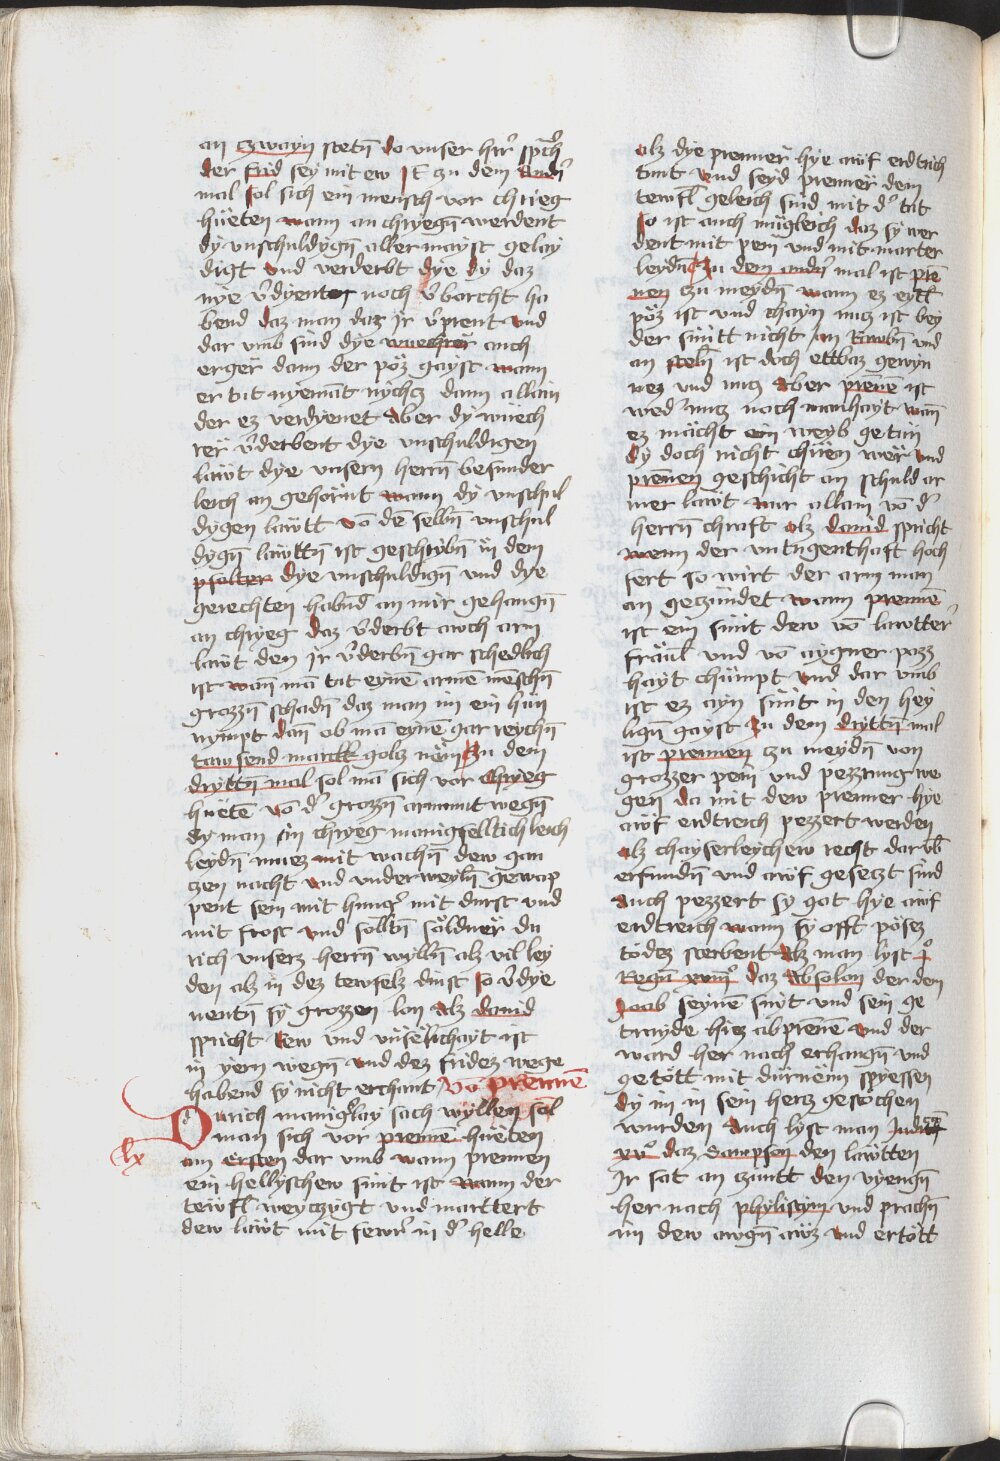 an zwayn stetn̄ do unser hr̄r sp̄ch
der frid sey mit ew It zu dem andn̄
mal sol sich ein mensch vor chrieg
hüeten wann an chriegn̄ werdent
dy unschuldygn̄ aller mayst gelay
digt und verderbt dye dy daz
nye v̄dyenten noch v̄barcht ha
bend daz man daz jr v̄prent und
dar umb sind dye wuechrer auch
erger dann der pöz gayst wann
er tut nyemāt nychcz dann allain
der ez verdyenet Aber dy wuech
rer v̄derbent dye unschuldigen
läwt dye unsern herrn̄ besunder
leich an gehörnt wann dy unschul
dygen läwtt vō dē selbn̄ unschul
dygn̄ läwttn̄ ist geschrybn̄ in dem
psalter dye unschuldign̄ und dye
gerechten habnd an mir gehangn̄
an chryeg daz v̄derbt auch arm
läwt den jr v̄derbn̄ gar schedlich
ist wan̄ mā tüt eynē armē menschn̄
grozzn̄ schadn̄ daz man im ein hün
nympt dan̄ ob mā eynē gar reychn̄
tawsend marckk golz nēm Zu dem
dryttn̄ mal sol mā sich vor chryeg
hüetē vō d' grozzn̄ armmut wegn̄
dy man in chryeg manigfelltichleich
leydn̄ muez mit wachn̄ dew gan
czen nacht und underweyln̄ gewap
pent sein mit hung' mit durst und
mit frost und solltn̄ söldner du
rich unserz herrn̄ wylln̄ alz vil ley
den alz in dez tewfelz dinst so v̄dye
nentn̄ sy grozzen lon Alz david
spricht rew und unselichayt ist
in yern wegn̄ und dez fridez wege
habend sy nicht erchant Vō prennē
Durich manig'lay sach wyllen sol
man sich vor prennē hüeten
lx
am ersten dar umb wann prennen
ein hellyschew sünt ist wann der
tewfl weyczygt und marttert
dew läwt mit fewr in d' helle
alz dye prenner hye awf erdtrich
tunt und seyd prenner dem
tewfl geleich sind mit d' tat
so ist auch mügleich daz sy wer
dent mit pein und mit marter
leydn̄ Zu dem andn̄ mal ist prē
nen zu meydn̄ wann ez eytl
pöz ist und chayn nucz ist bey
der sünt nicht an Rawbn̄ und
an steln̄ ist doch ettbaz gewyn
nez und nucz Aber prenē ist
wed' nucz noch manhayt wan̄
ez mächt ein weyb getün
dy doch nicht chüen wer und
prennen geschicht an schuld ar
mer läwt nur allain vō d'
herrn̄ chraft alz david spricht
wenn der untugenthaft hoch
fert so wirt der arm man
an geczündet wann prennē
ist ein sünt dew vō lawtter
fräul und vō aygner pozz
hayt chümpt und dar umb
ist ez ayn sünt in den hey
lign̄ gayst Zu dem dryttn̄ mal
ist prennen zu meydn̄ von
grozzer pein und pezzrung we
gen da mit dew prenner hye
awf erdtreich pezzert werden
alz chayserleychew recht darūb
erfundn̄ und awf gesetzt sind
Auch pezzert sy got hye awf
erdtreich wann sy offt pösez
tödez sterbent Alz man lyst p'
Regn̄ xviii° daz Absolon der den
joab seynē sünt und sein ge
trayde hiez abprenē und der
ward her nach erhangn̄ und
getött mit dürnēin spyessen
dy im in sein hertz gestochen
wurden Auch lyst man Judicū
xv° daz Sampson den läwtten
Ir sat an czuntt den vyengn̄
her nach phyliscyn und prachn̄
im dew awgn̄ awz und ertött